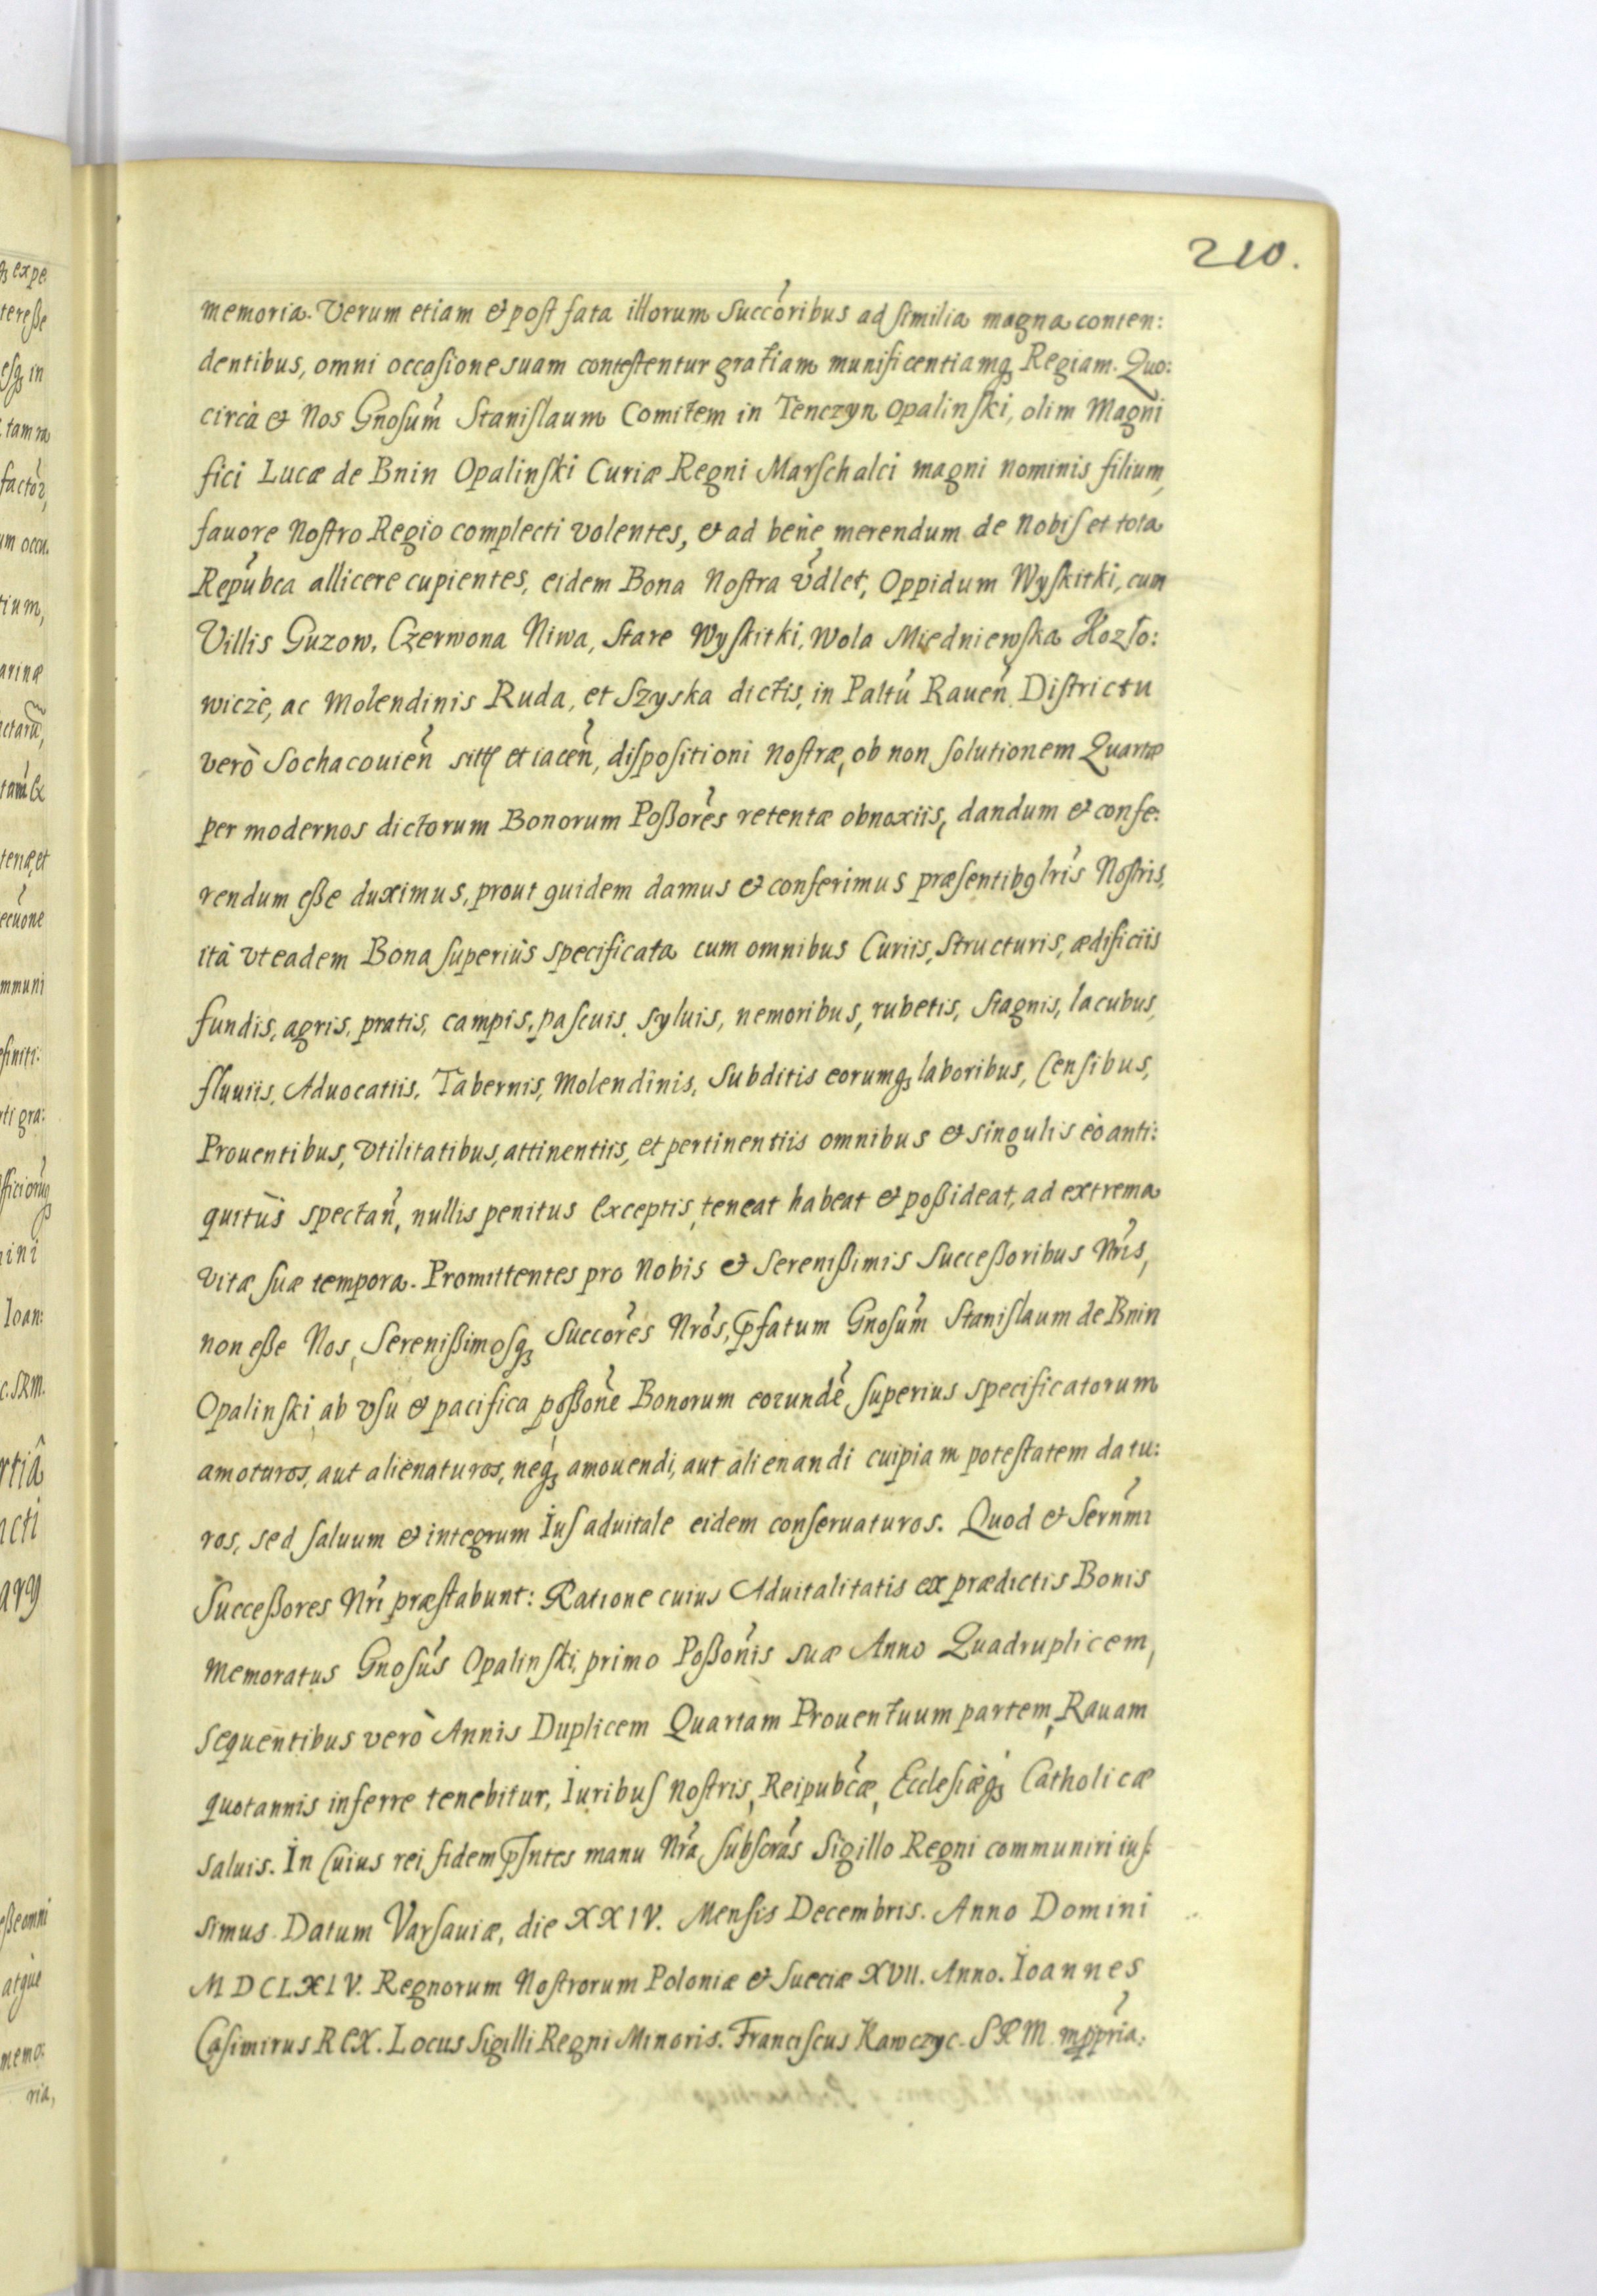 210.
memoria. Verum etiam & post fata illorum Succoribus ad similia magna conten:
dentibus, omni occasione suam contestentur gratiam munificentiamq₃ Regiam. Quo:
circà & Nos Gnosum Stanislaum Comitem in Tenczyn Opalinski, olim Magni
fici Lucæ de Bnin Opalinski Curiæ Regni Marschalci magni nominis filium,
fauore Nostro Regio complecti volentes, & ad bene merendum de Nobis et tota
Repubca allicere cupientes, eidem Bona Nostra vdlet, Oppidum Wyskitki, cum
Villis Guzow, Czerwona Niwa, Stare Wyskitki, Wola Miedniewska Kozło:
wicze, ac Molendinis Ruda, et Szyska dictis, in Paltu Rauen Districtu
verò Sochacouien sitt et iacen, dispositioni Nostræ, ob non solutionem Quartæ
per modernos dictorum Bonorum Poßores retentæ obnoxiis, dandum & confe:
rendum eße duximus, prout quidem damus & conferimus præsentibg lris Nostris,
ità vt eadem Bona superiùs specificata cum omnibus Curiis, Structuris, ædificiis
fundis, agris, pratis, campis, pascuis, syluis, nemoribus, rubetis, stagnis, lacubus,
fluuiis, Aduocatiis, Tabernis, Molendinis, Subditis eorumq₃ laboribus, Censibus,
Prouentibus, vtilitatibus, attinentiis, et pertinentiis omnibus & singulis eò anti:
quitùs spectan, nullis penitus exceptis, teneat habeat & poßideat, ad extrema
vitæ suæ tempora. Promittentes pro Nobis & Serenißimis Succeßoribus Nris,
non eße Nos, Serenißimosq₃ Succores Nros, Pfatum Gnosum Stanislaum de Bnin
Opalinski ab vsu & pacifica poßone Bonorum eorundē superius specificatorum
amoturos, aut alienaturos, neq₃ amouendi, aut alienandi cuipiam potestatem datu:
ros, sed saluum & integrum Ius aduitale eidem conseruaturos. Quod et Sernmi
Succeßores Nri præstabunt: Ratione cuius Aduitalitatis ex prædictis Bonis
memoratus Gnosus Opalinski, primo Poßonis suæ Anno Quadruplicem,
sequentibus verò Annis Duplicem Quartam Prouentuum partem, Rauam
quotannis inferre tenebitur, Iuribus Nostris, Reipubcæ, Ecclesiæq₃ Catholicæ
saluis. In Cuius rei fidem Psntes manu Nra subscras Sigillo Regni communiri ius:
simus. Datum Varsauiæ, die XXIV. Mensis Decembris. Anno Domini
MDCLXIV. Regnorum Nostrorum Poloniæ & Sueciæ XVII. Anno. Ioannes
Casimirus REX. Locus Sigilli Regni Minoris. Franciscus Kawczyc. SRM. mppria.